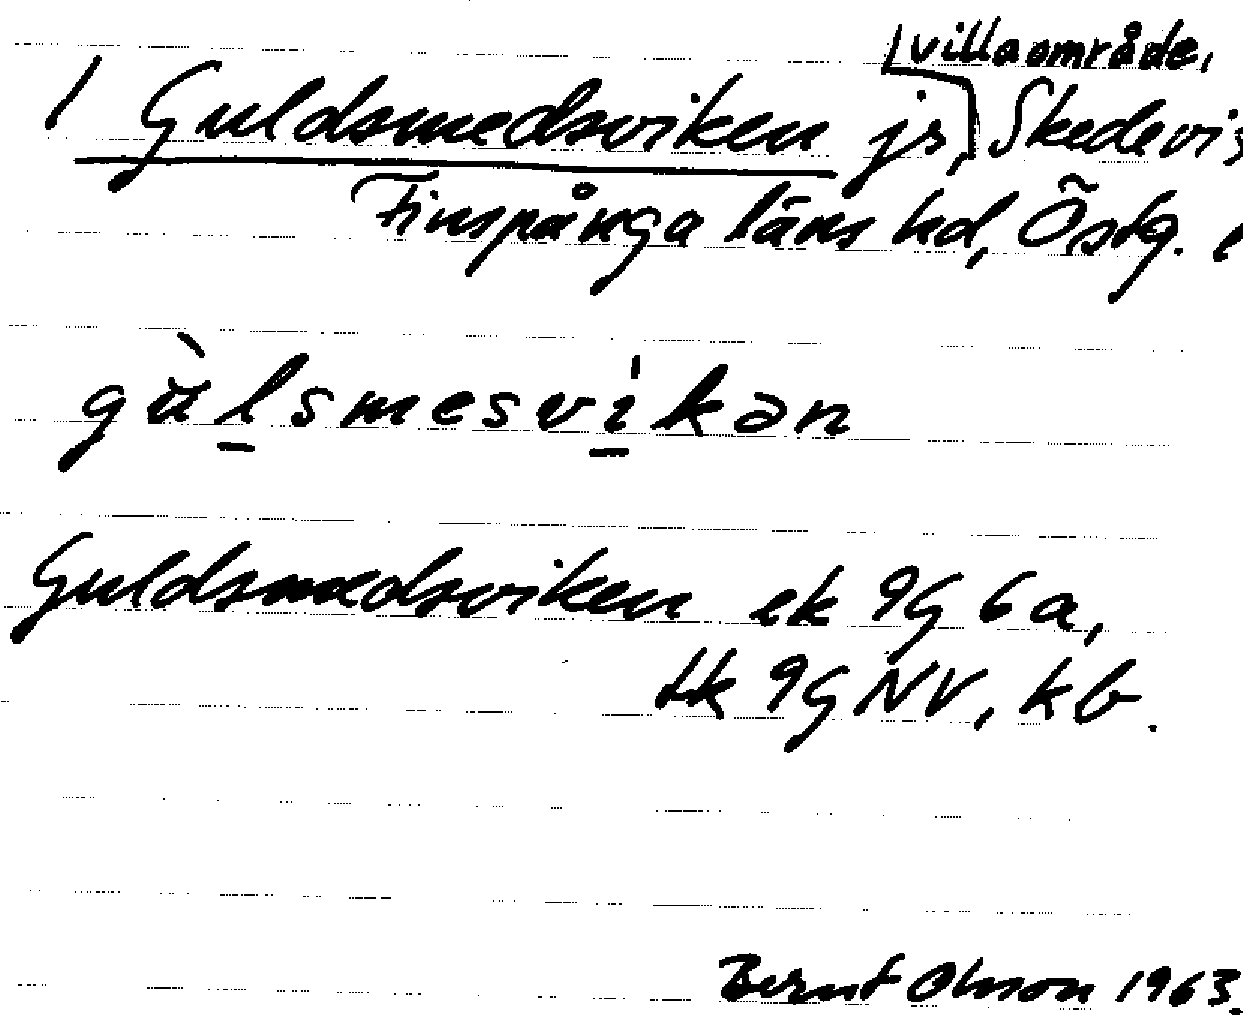 villaområde,
1 Guldsmedsviken js, Skedevi s
Finspånga läns hd, Östg. l
gùlsmesvikən
Guldsmedsviken ek 9G 6a,
tk 9G NV, kb.
Bernt Olsson 1963.